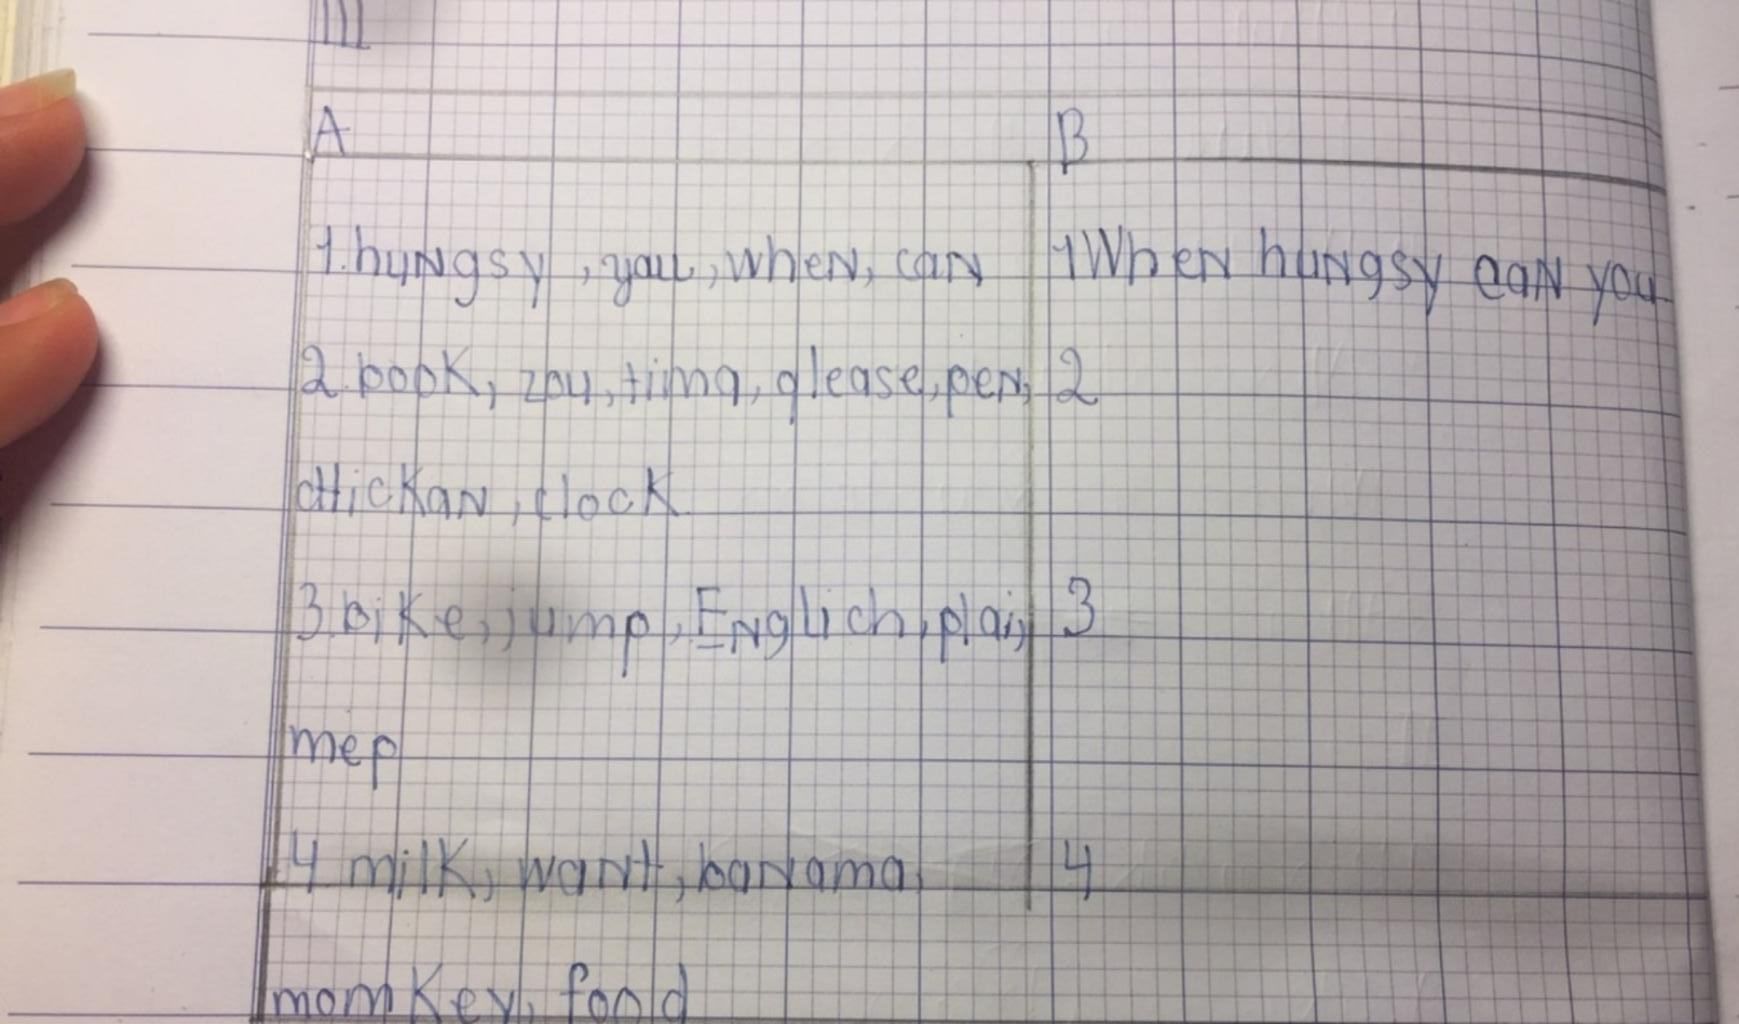 III
A B
1. hungsy, you, when, can 1 When hungsy can you
2. book, zou, tima, qlease, pen, 2
chickan, clock
3. bike, jump, Englich, plai, 3
mep
4 milk, want, banama, 4
momkey, foold